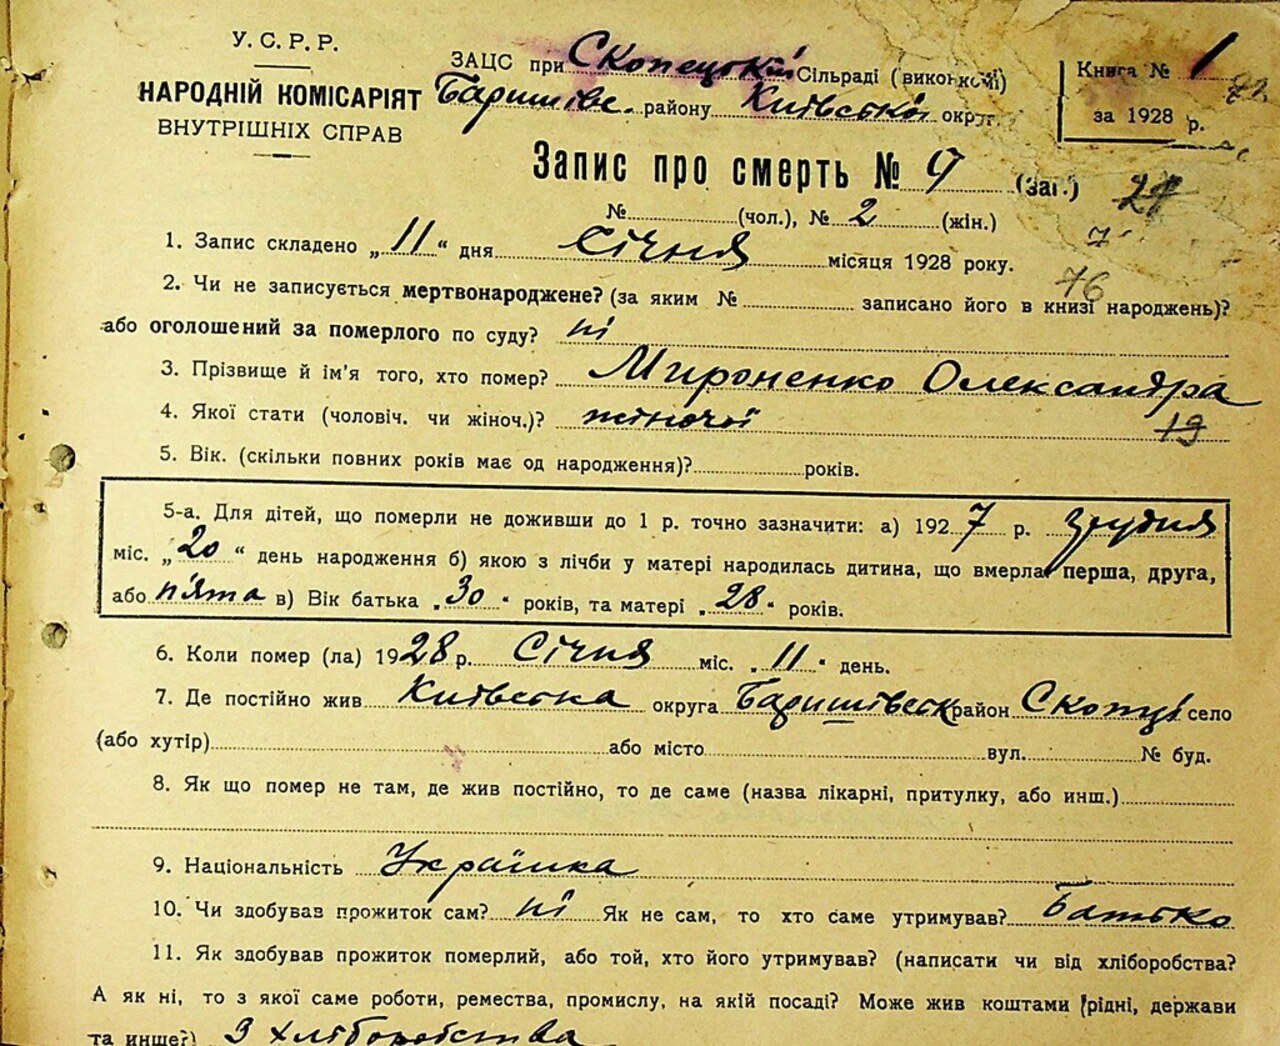 У. С. Р. Р.
НАРОДНІЙ КОМІСАРІЯТ
ВНУТРІШНІХ СПРАВ
ЗАЦС при Скопецькій Сільраді (виконкомі)
Баришівс. району Київської округ.
Книга № 1
за 1928 р.
Запис про смерть № 9 (заг.) 21
№ (чол.), № 2 (жін.)
1. Запис складено „11“ дня Січня місяця 1928 року.
76
2. Чи не записується мертвонароджене? (за яким № записано його в книзі народжень)?
або оголошений за померлого по суду? ні
3. Прізвище й ім'я того, хто помер? Мироненко Олександра
4. Якої стати (чоловіч. чи жіноч.)? жіночої 19
5. Вік. (скільки повних років має од народження)? років.
5-а. Для дітей, що померли не доживши до 1 р. точно зазначити: а) 1927 р. грудня
міс. „20“ день народження б) якою з лічби у матері народилась дитина, що вмерла перша, друга,
або п'ята в) Вік батька „30“ років, та матері „28“ років.
6. Коли помер (ла) 1928 р. Січня міс. „11“ день.
7. Де постійно жив Київська округа Баришівськ район Скопці село
(або хутір) або місто вул. № буд.
8. Як що помер не там, де жив постійно, то де саме (назва лікарні, притулку, або инш.)
9. Національність Українка
10. Чи здобував прожиток сам? ні Як не сам, то хто саме утримував? Батько
11. Як здобував прожиток померлий, або той, хто його утримував? (написати чи від хліборобства?
А як ні, то з якої саме роботи, ремества, промислу, на якій посаді? Може жив коштами (рідні, держави
та инше?) З хліборобства